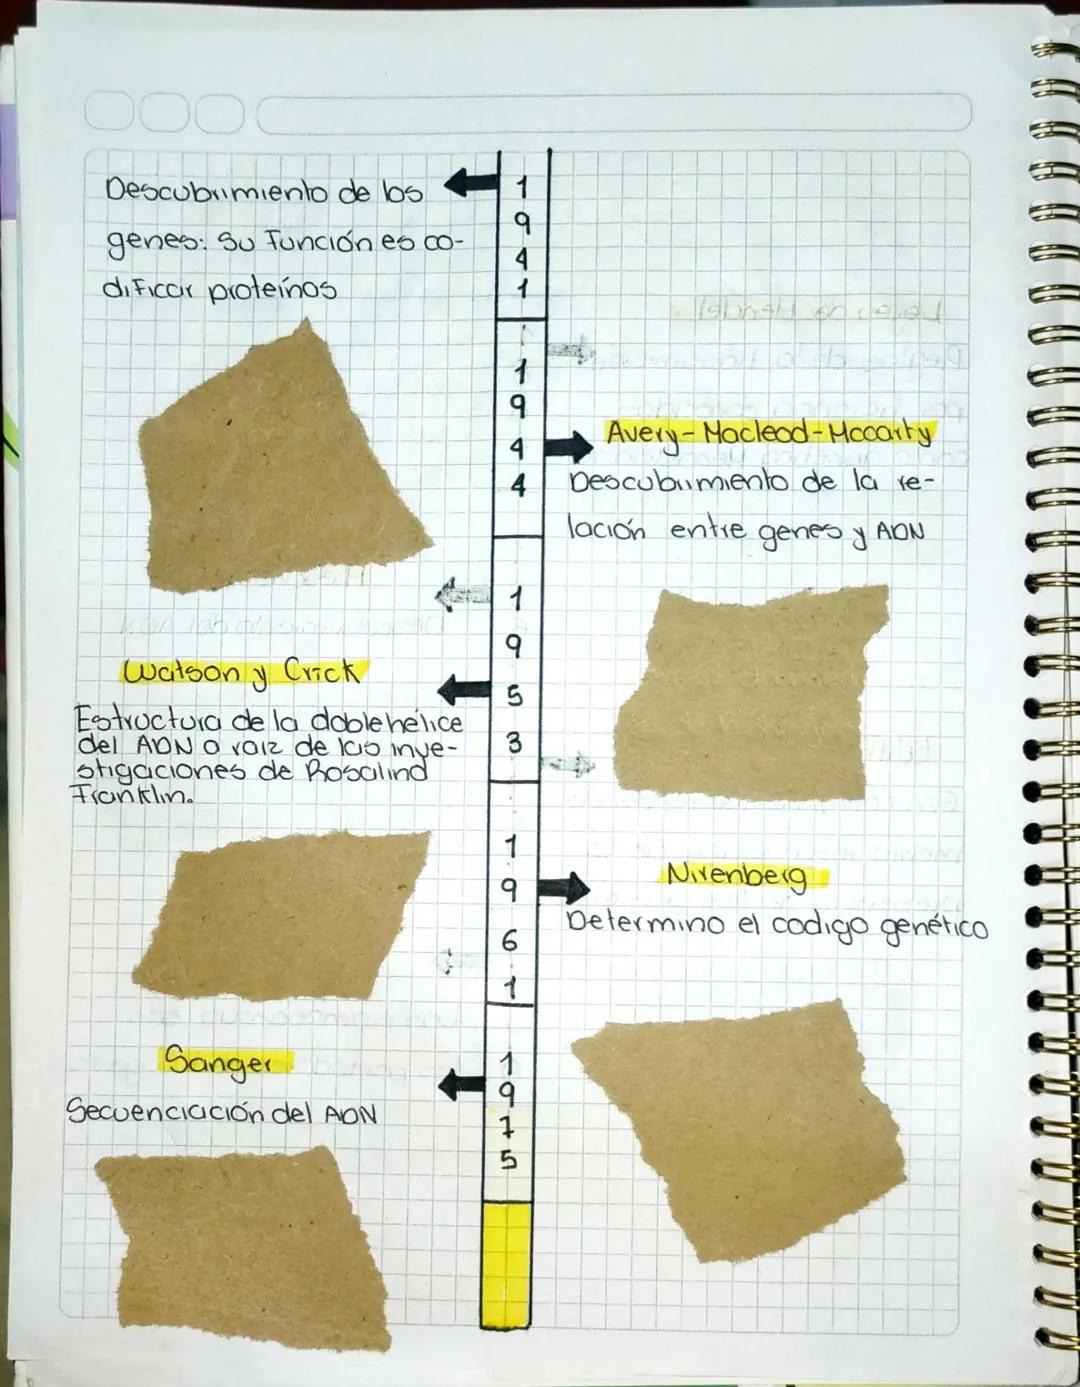 Descubrimiento de los
genes: su función es co-
dificar proteínas
1941
1944
Avery-Macleod-Mccarty
Descubrimiento de la re-
lación entre genes y ADN
1953
Watson y Crick
Estructura de la doble hélice
del ADN a raiz de las inve-
stigaciones de Rosalind
Franklin.
1961
Nirenberg
Determino el codigo genético
1975
Sanger
Secuenciación del ADN